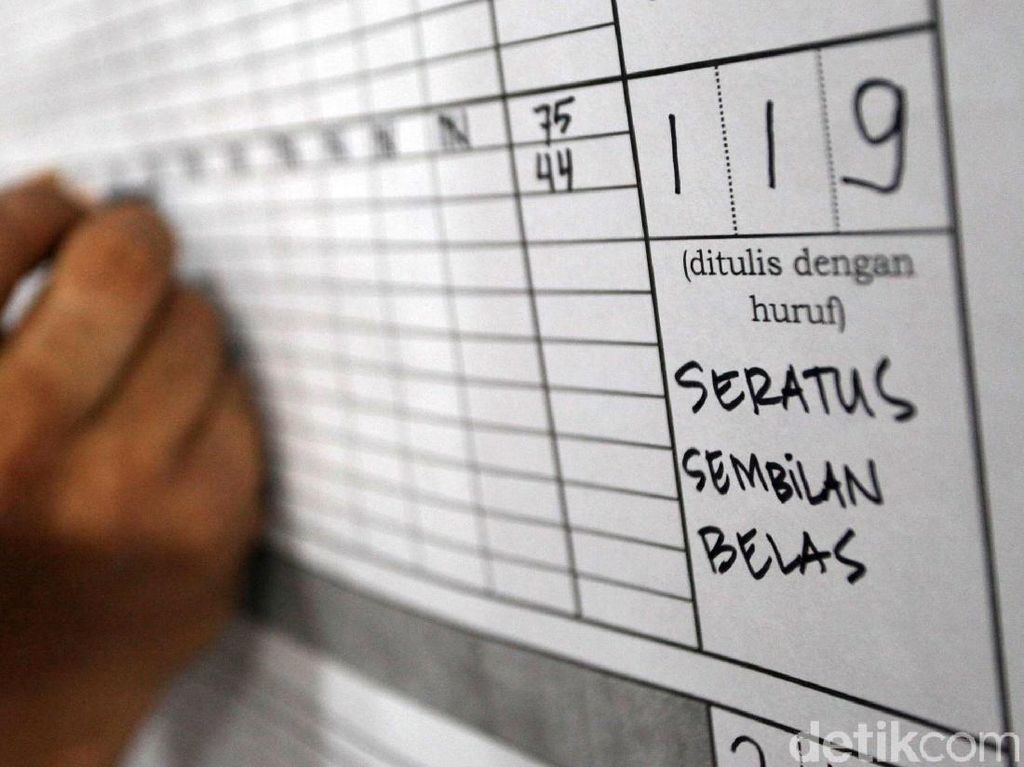 75
44
1 1 9
(ditulis dengan
huruf)
SERATUS
SEMBILAN
BELAS
detikcom